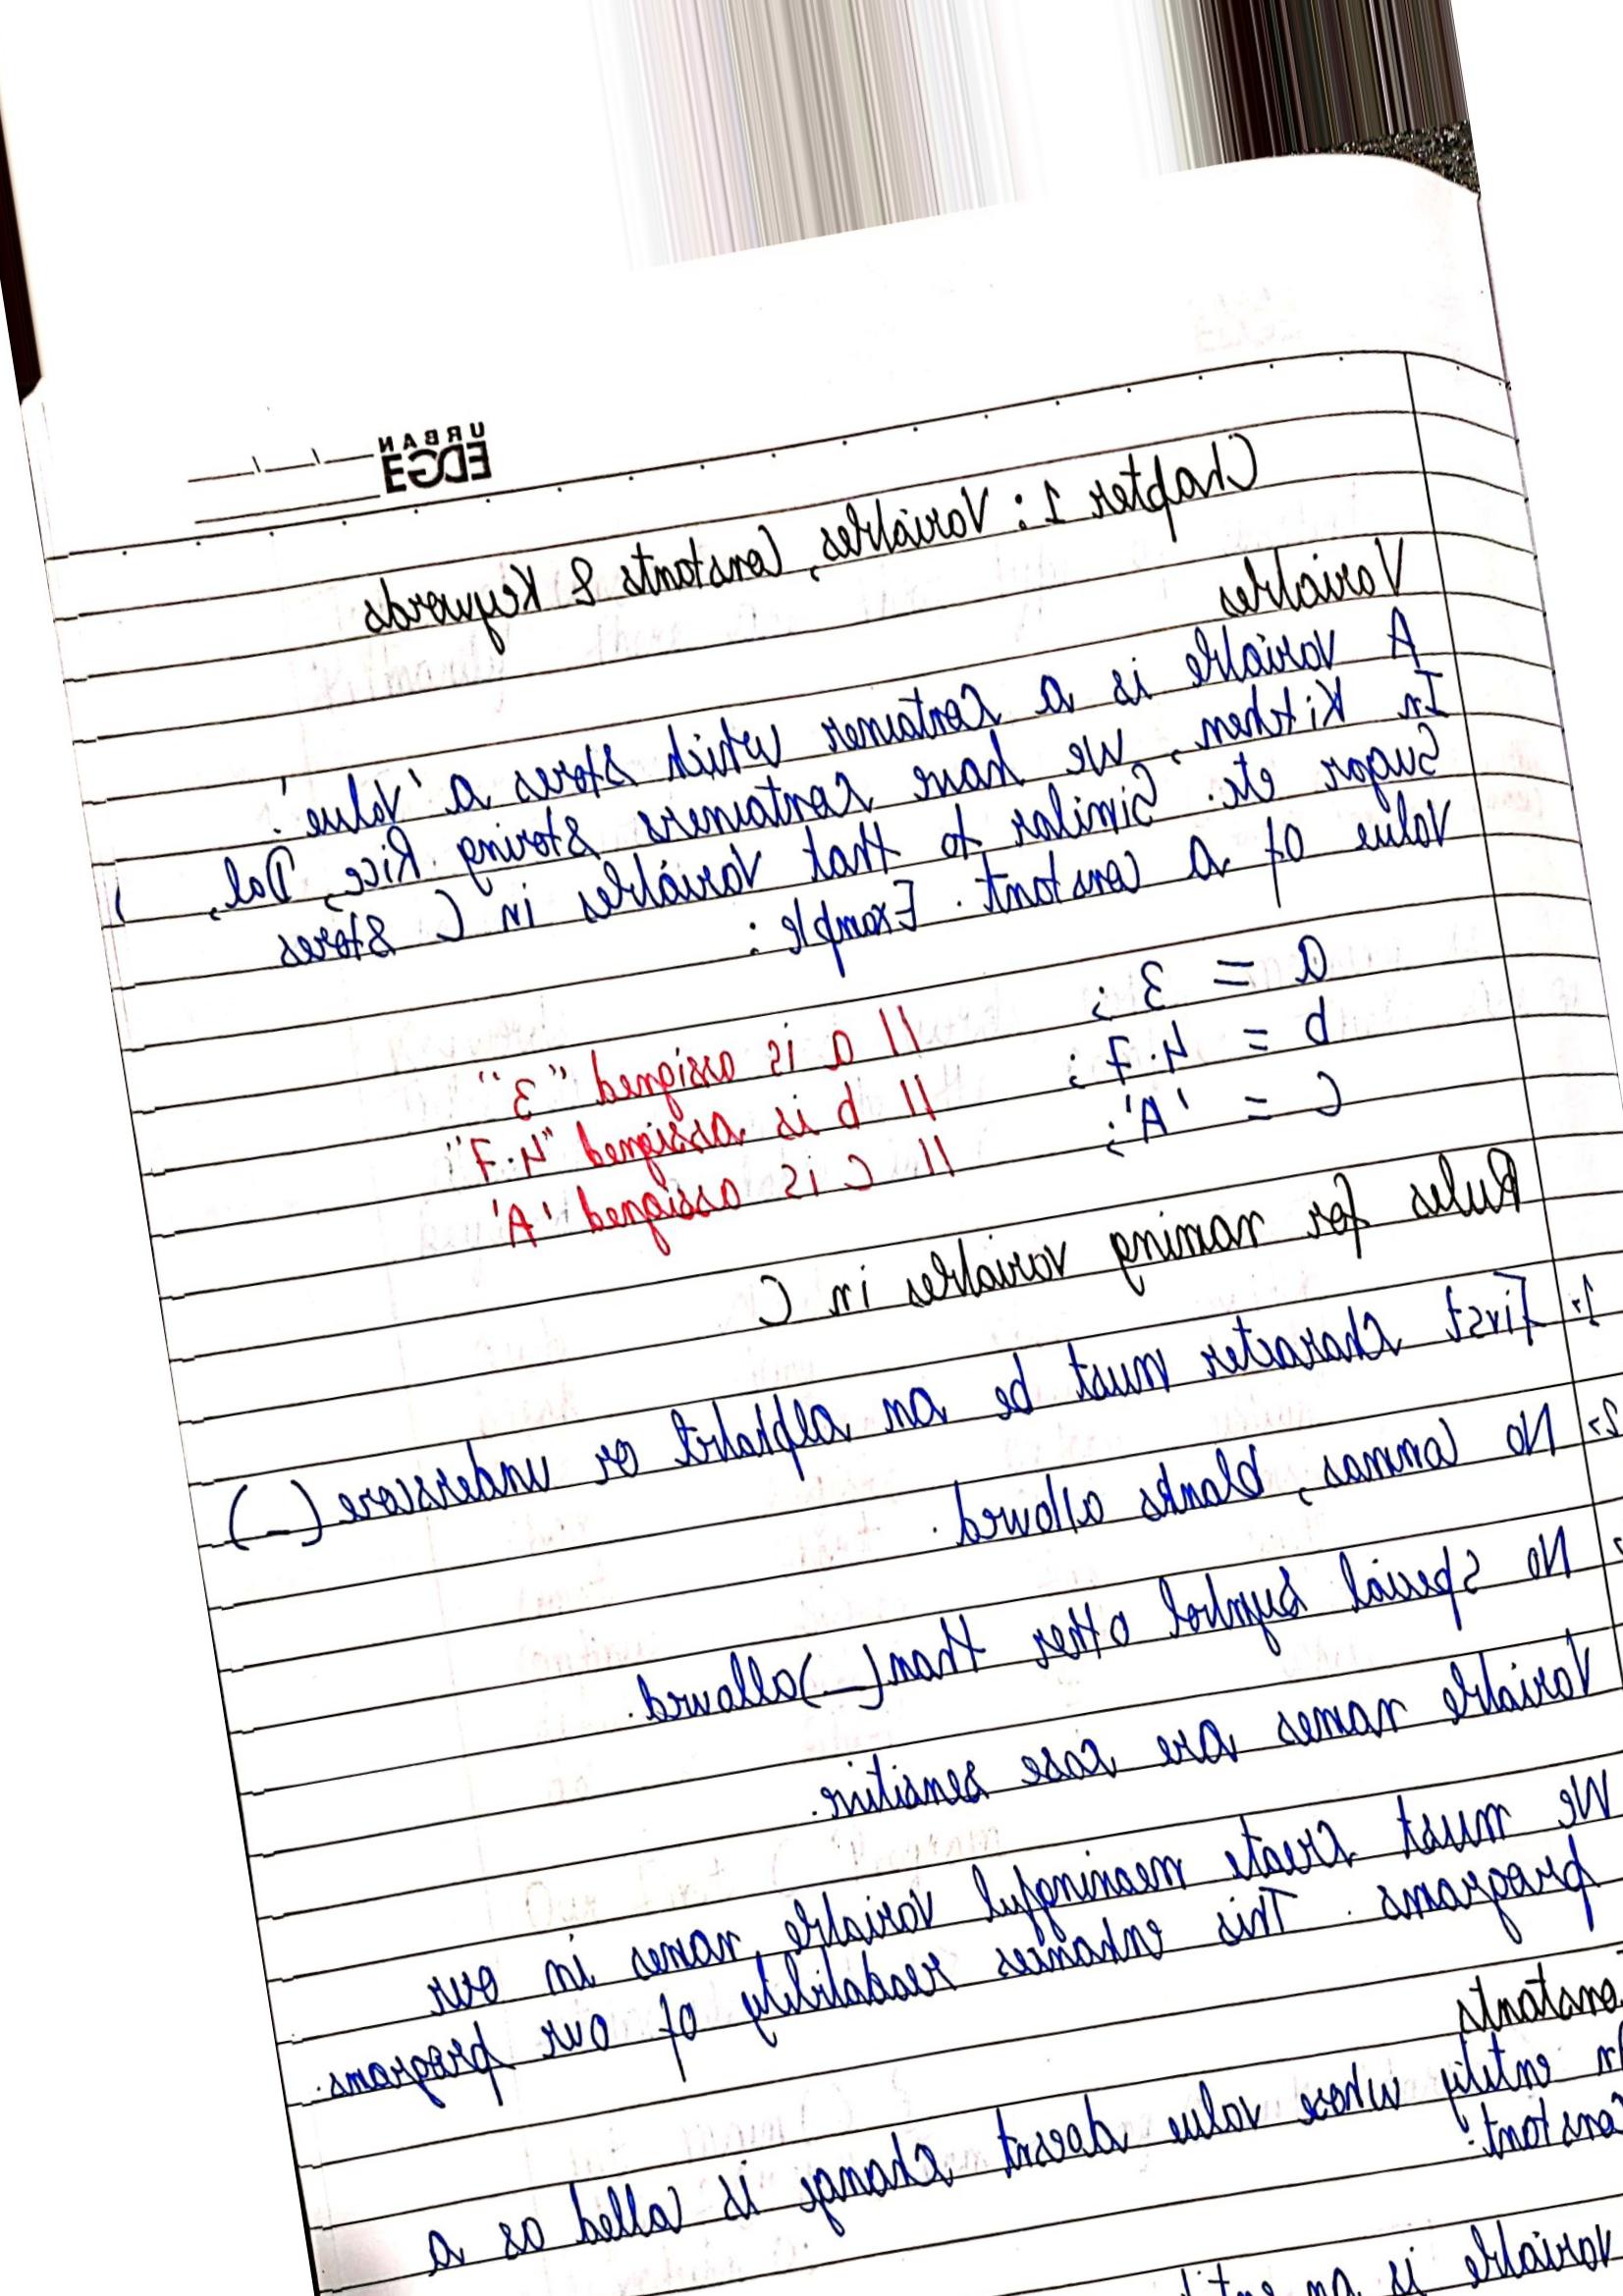 URBAN
EDGE
Chapter 1: Variables, Constants & Keywords
Variables
A variable is a container which stores a 'value'.
In Kitchen, We have containers storing Rice, Dal,
Sugar etc. Similar to that Variables in C stores
value of a constant. Example:
a = 3; // a is assigned "3"
b = 4.7; // b is assigned "4.7"
C = 'A'; // C is assigned 'A'
Rules for naming variables in C
1. First character must be an alphabet or underscore (_)
2. No commas, blanks allowed.
No special symbol other than (_) allowed.
Variable names are case sensitive.
We must create meaningful variable names in our
programs. This enhances readability of our programs.
onstants
n entity whose value doesnt change is called as a
onstant.
variable is an